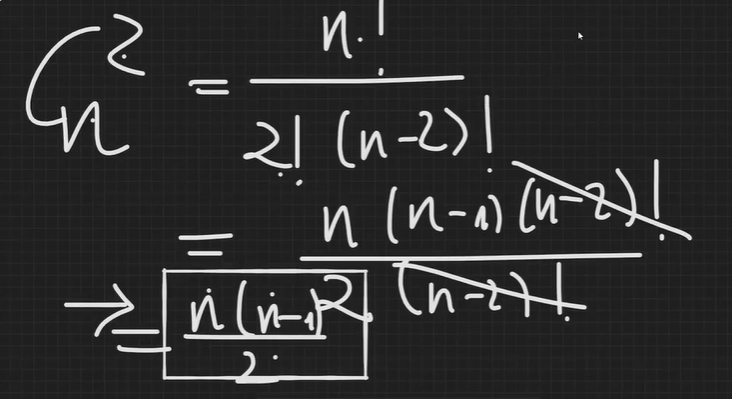 C_n^2 = n! / 2! (n-2)!
= n (n-1) (n-2)! / 2 (n-2)!
→ = n (n-1) / 2